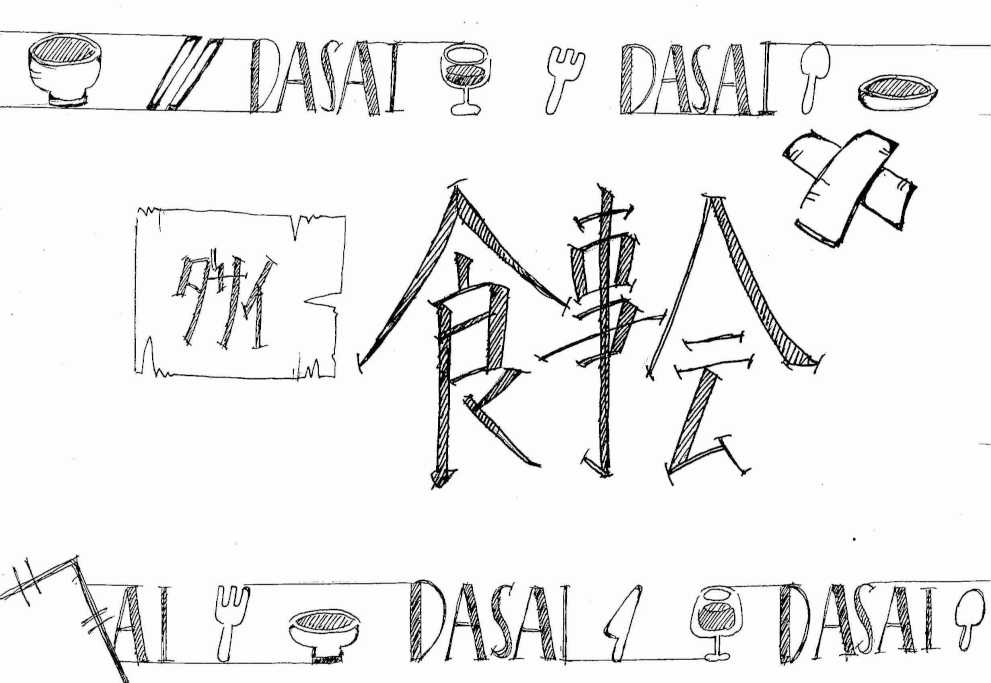 DASAI DASAI
ダサイ 食事会
AI DASAI DASAI